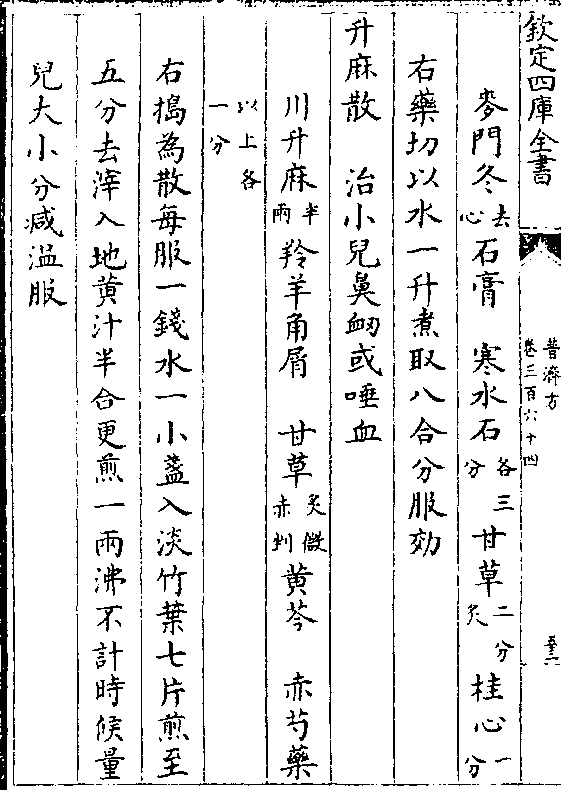 欽定四庫全書
普濟方
卷三百六十四
麥門冬去心石膏　寒水石各三分甘草二分炙桂心一分
右藥切以水一升煮取八合分服効
升麻散　治小兒鼻衂或唾血
川升麻半兩羚羊角屑　甘草炙微赤剉黄芩　赤芍藥
以上各一分
右搗為散每服一錢水一小盞入淡竹葉七片煎至
五分去滓入地黄汁半合更煎一兩沸不計時候量
兒大小分减温服